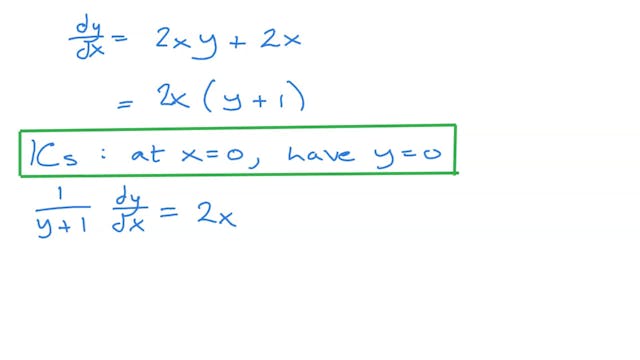 dy/dx = 2xy + 2x
= 2x (y + 1)
ICs : at x=0, have y=0
1/(y+1) dy/dx = 2x